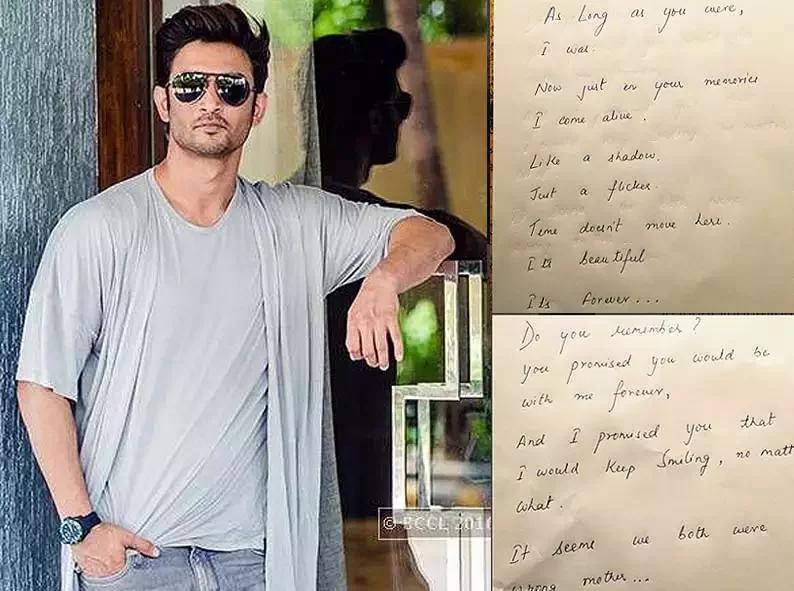 As Long as you were,
I was.
Now just in your memories
I come alive.
Like a shadow,
Just a flicker.
Time doesn't move here.
It is beautiful
Its forever...
Do you remember?
You promised you would be
with me forever,
And I promised you that
I would keep Smiling, no matt
what.
It seems we both were
wrong mother...
© BCCL 2016